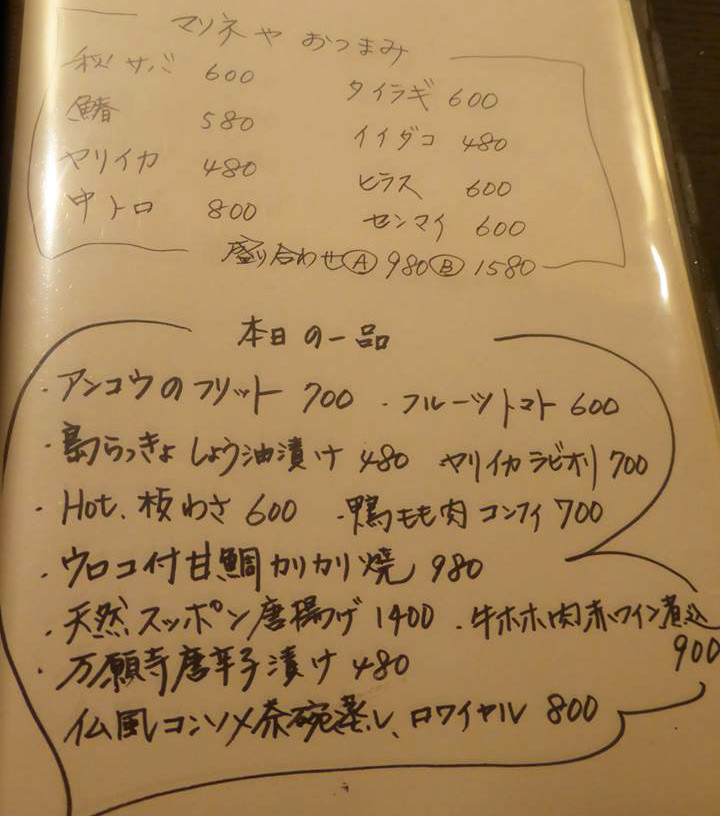 マリネや おつまみ
秋サバ 600 タイラギ 600
鰆 580 イイダコ 480
ヤリイカ 480 ヒラス 600
中トロ 800 センマイ 600
盛り合わせ Ⓐ 980 Ⓑ 1580
本日の一品
・アンコウのフリット 700 ・フルーツトマト 600
・島らっきょ しょう油漬け 480 ヤリイカラビオリ 700
・Hot、板わさ 600 ・鴨もも肉コンフィ 700
・ウロコ付甘鯛カリカリ焼 980
・天然スッポン唐揚げ 1400 ・牛ホホ肉赤ワイン煮込
900
・万願寺唐辛子漬け 480
仏風コンソメ茶碗蒸し、ロワイヤル 800